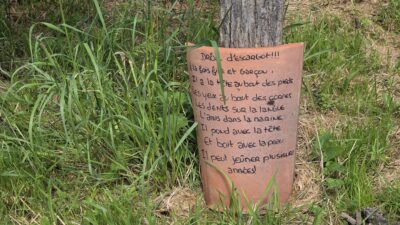 Drôle d'escargot!!!
À la fois fille et garçon,
Il a la tête au bout des pieds
Des yeux au bout des cornes
Des dents sur la langue
L'anus dans la narine
Il pond avec la tête
Et boit avec la peau
Il peut jeûner plusieurs
années!